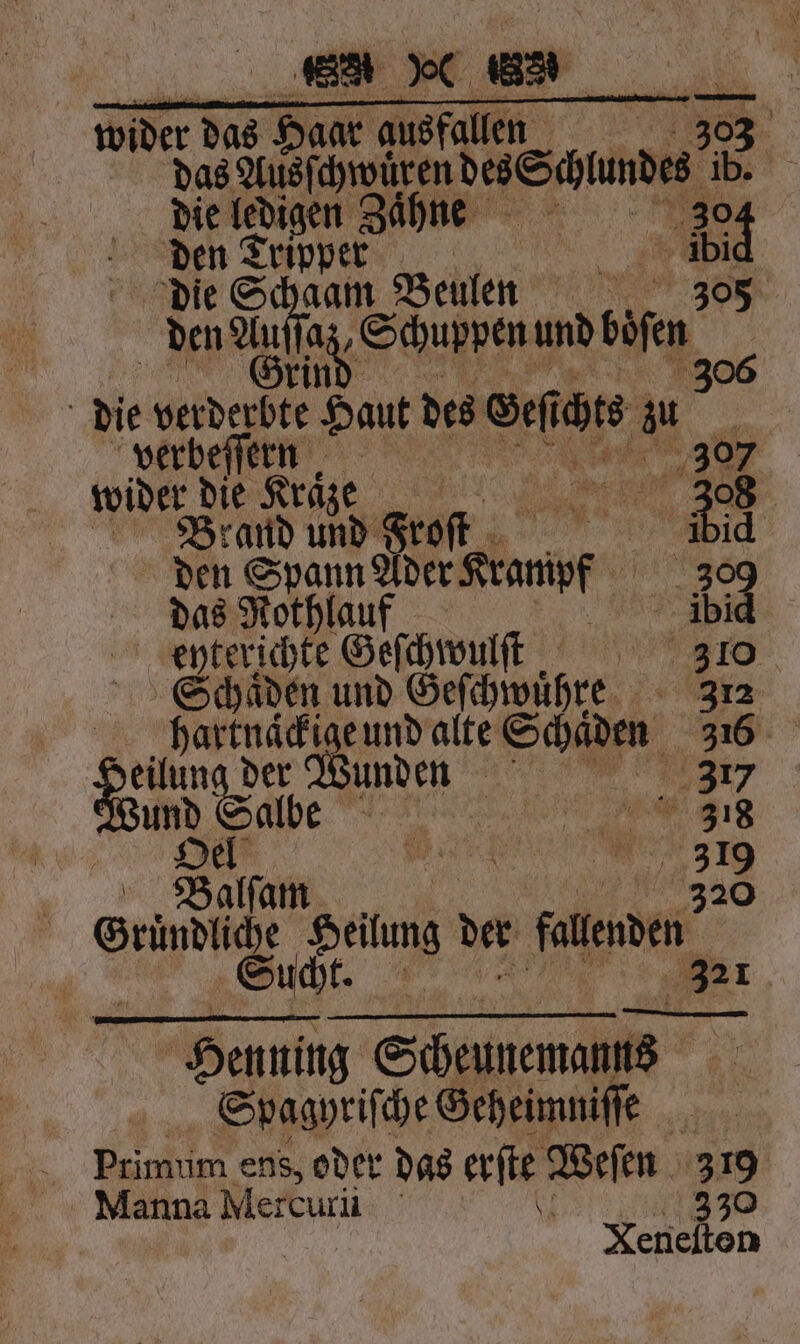 wider das Haar ausfallen 303
das Ausſchwuͤren des Schlundes ib.
die ledigen Zaͤhne 304
den Tripper ibid
die Schaam Beulen 305
den Auſſaz, Schuppen und boͤſen
Grind 306
die verderbte Haut des Geſichts zu
verbeſſern 307
wider die Kraͤze 308
Brand und Froſt ibid
den Spann Ader Krampf 309
das Rothlauf ibid
eyterichte Geſchwulſt 310
Schaͤden und Geſchwuͤhre 312
hartnaͤckige und alte Schaͤden 316
Heilung der Wunden 317
Wund Salbe 318
Oel 319
Balſam 320
Gruͤndliche Heilung der fallenden
Sucht. 321
Henning Scheunemanns
Spagyriſche Geheimniſſe
Primum ens, oder das erſte Weſen 319
Manna Mercurii 330
Xeneſton